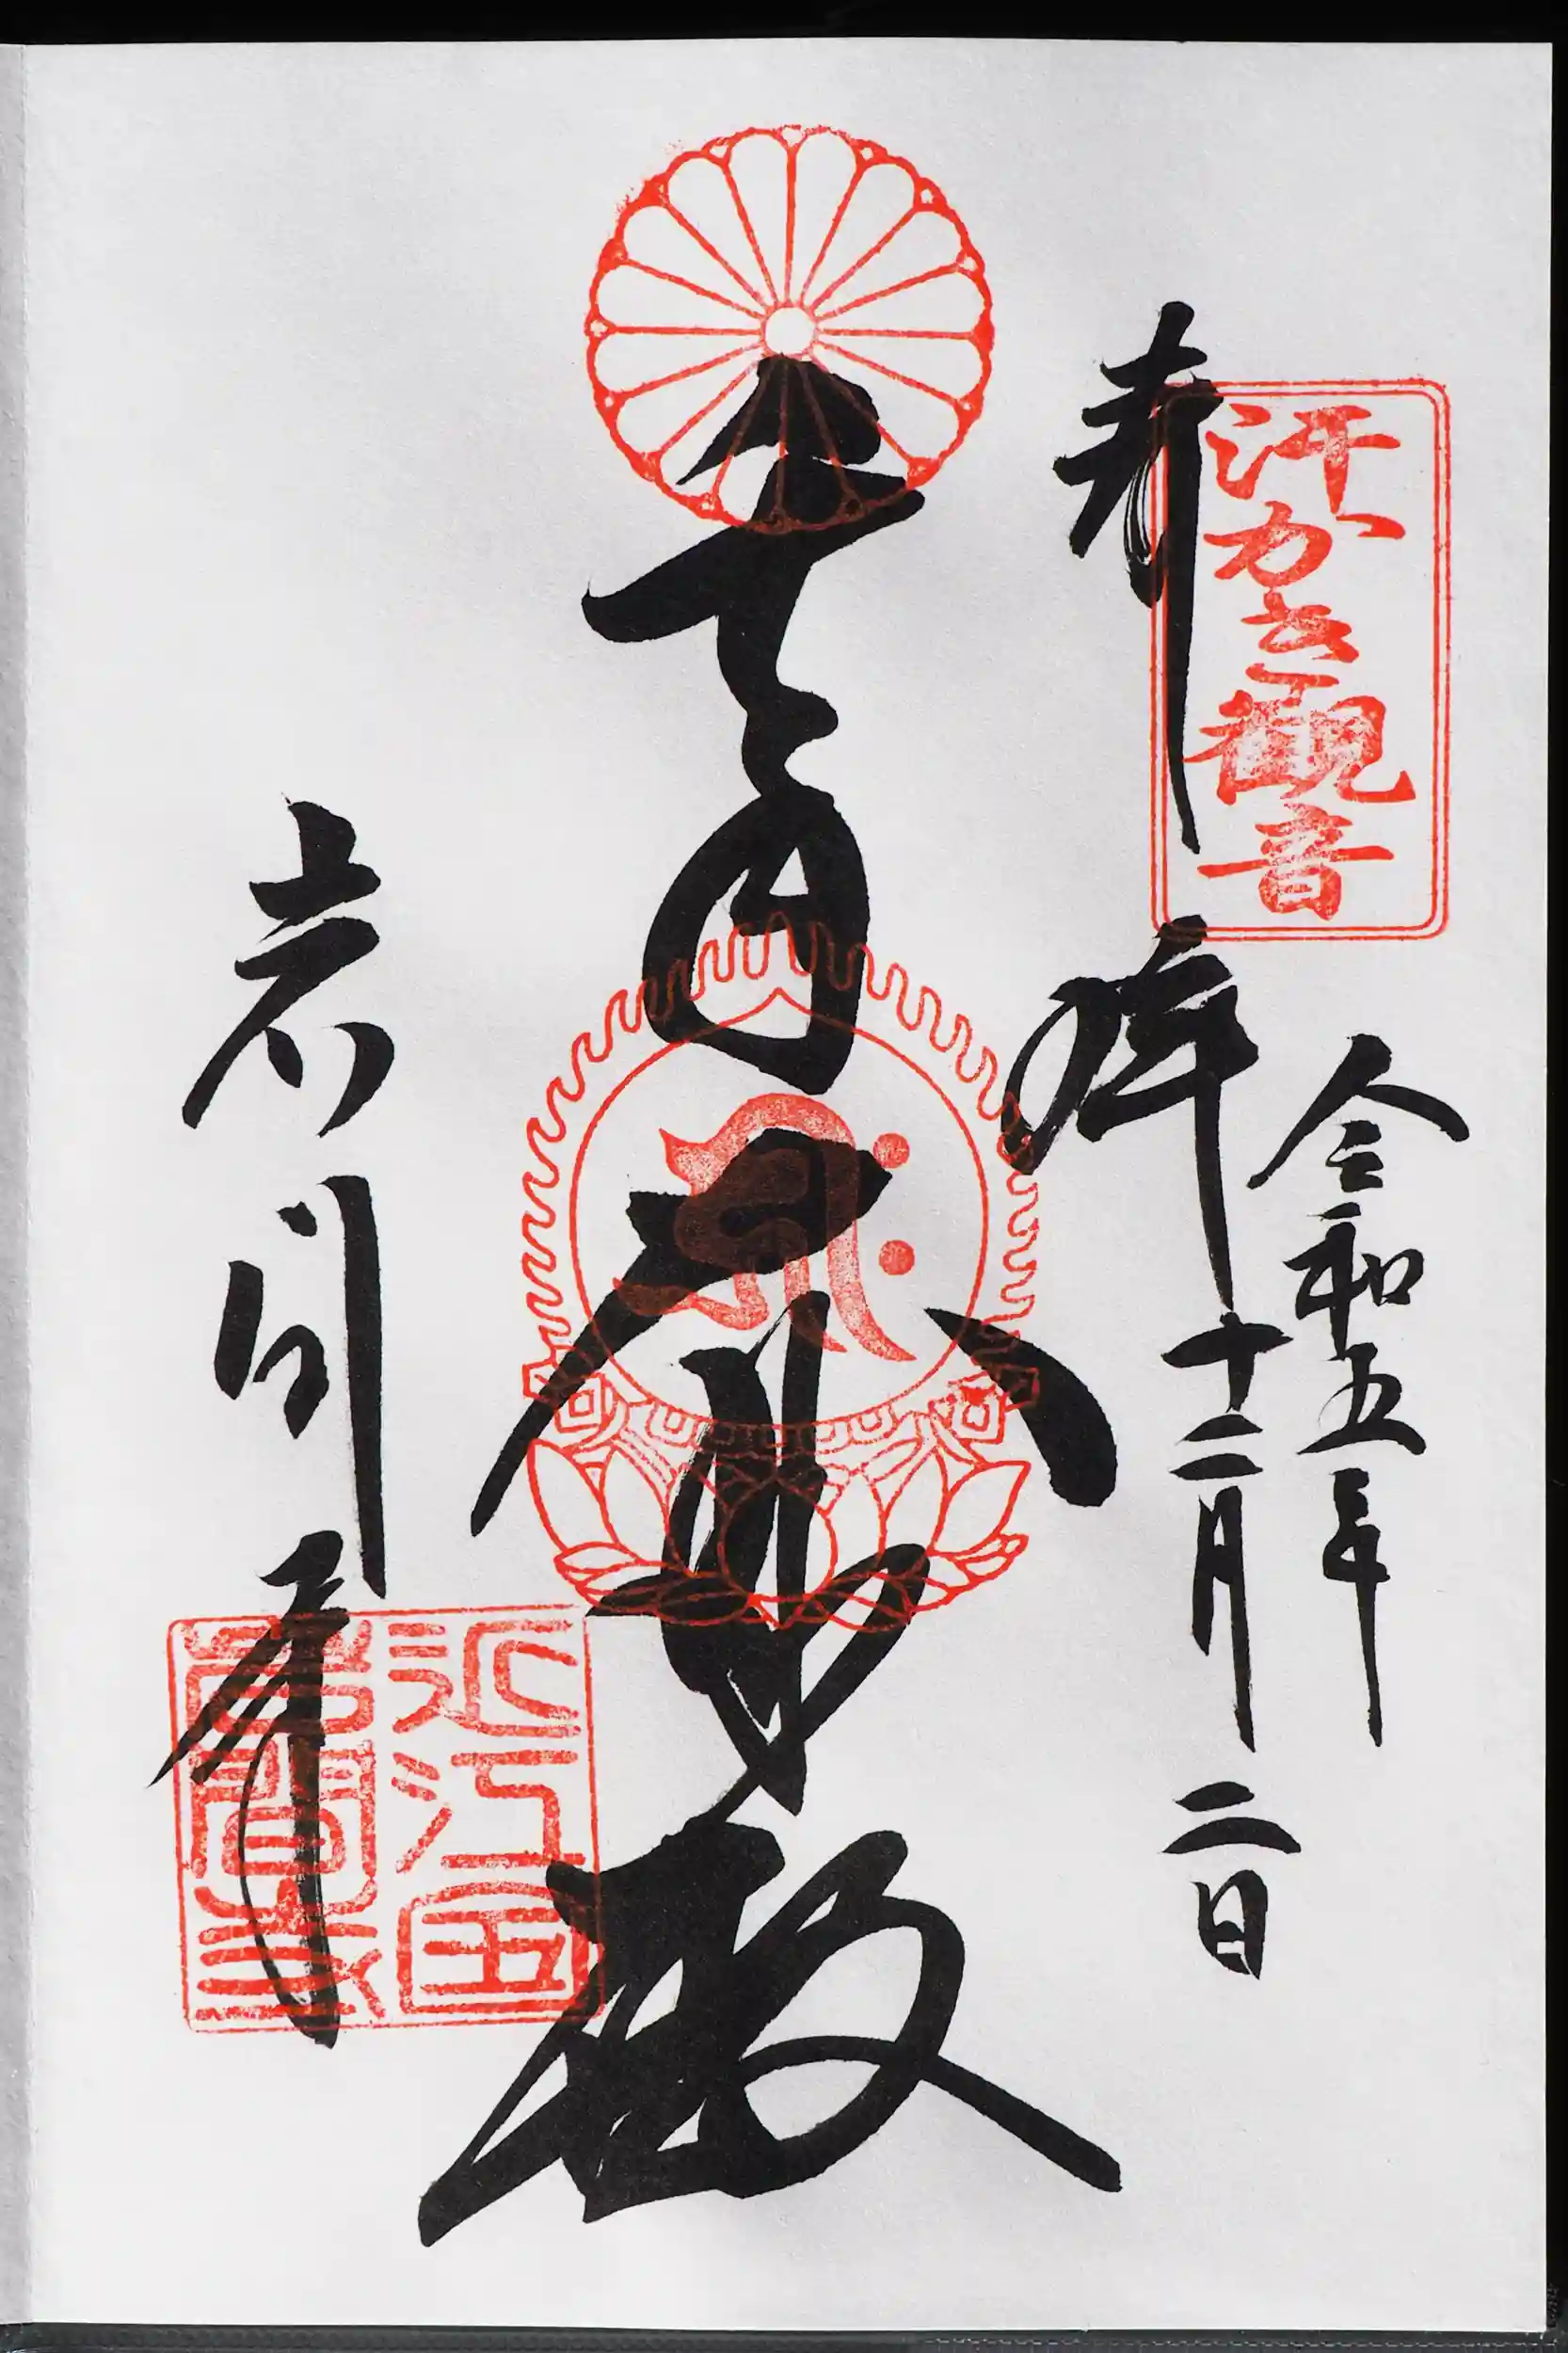 汗かき観音
奉拝
令和五年
十二月二日
大悲殿
岩間寺
近江国
岩間寺